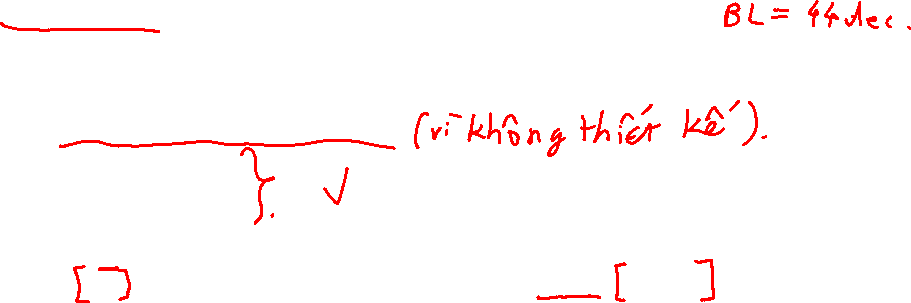 BL = 44 dec.
(vì không thiết kế).
[ ]
[ ]